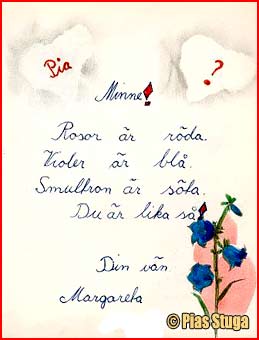 Pia
?
Minne!
Rosor är röda.
Violer är blå.
Smultron är söta.
Du är lika så!
Din vän
Margareta
© Pias Stuga